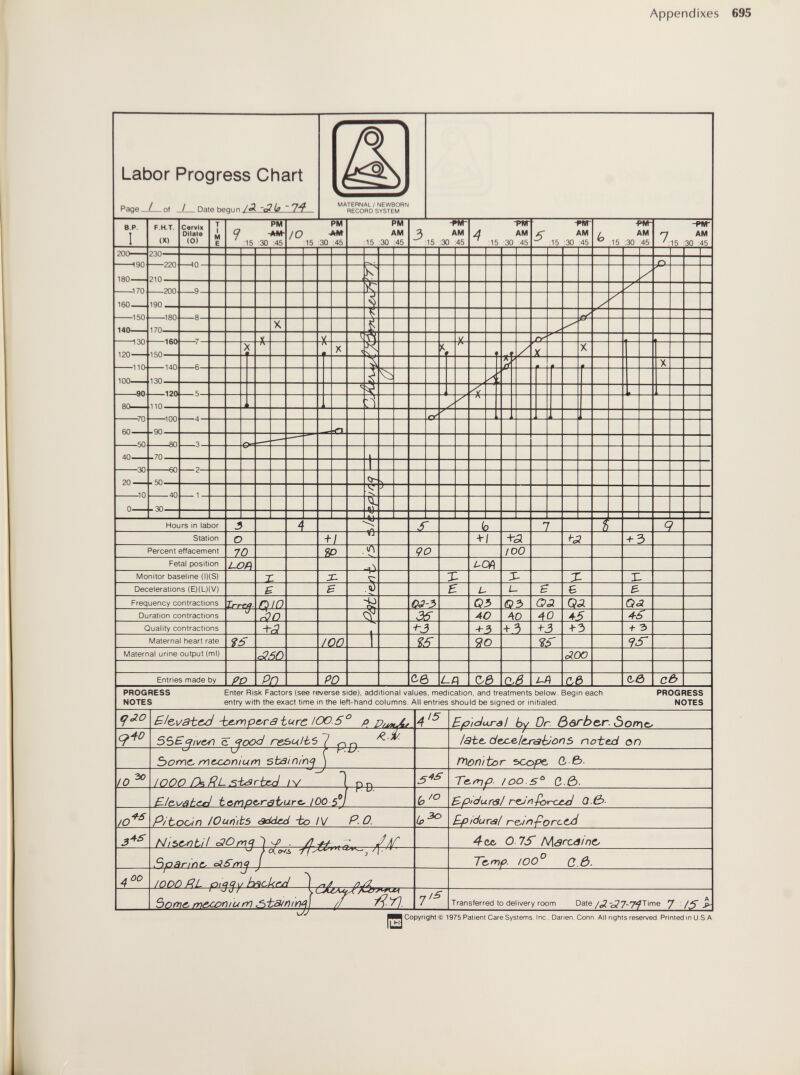 Appendixes 695
Labor Progress Chart
Page 1 of 1 Date begun 12-26-74
MATERNAL / NEWBORN
RECORD SYSTEM
B.P. F.H.T. (X) Cervix Dilate (O) TIME
9 PM AM :15 :30 :45 10 PM AM :15 :30 :45 PM AM :15 :30 :45 3 PM AM :15 :30 :45 4 PM AM :15 :30 :45 5 PM AM :15 :30 :45 6 PM AM :15 :30 :45 7 PM AM :15 :30 :45
200 230
190 220 10
180 210
170 200 9
160 190
150 180 8
140 170
130 160 7
120 150
110 140 6
100 130
90 120 5
80 110
70 100 4
60 90
50 80 3
40 70
30 60 2
20 50
10 40 1
0 30
Patient is sleeping — Cheryl Bonner R.N.
Hours in labor 3 4 5 6 7 8 9
Station 0 +1 +1 +2 +2 +3
Percent effacement 70 80 90 100
Fetal position LOA LOA
Monitor baseline (I)(S) I I I I I I
Decelerations (E)(L)(V) E E E L L E E E
Frequency contractions Irreg. Q10 Q2-3 Q3 Q3 Q2 Q2 Q2
Duration contractions 20 35 40 40 40 45 45
Quality contractions +2 +3 +3 +3 +3 +3 +3
Maternal heart rate 85 100 85 90 85 95
Maternal urine output (ml) 250 200
Entries made by PD PD PD CB LA CB C.B LA CB C.B CB
PROGRESS NOTES Enter Risk Factors (see reverse side), additional values, medication, and treatments below. Begin each PROGRESS NOTES
entry with the exact time in the left-hand columns. All entries should be signed or initialed.
9 20 Elevated temperature 100.5° R.N.
9 40 SSE given c good results P.D.
Some meconium staining
10 30 1000 D5RL started IV P.D.
Elevated temperature 100.5°
10 45 Pitocin 10 units added to IV P.D.
3 45 Nisentil 20mg
Sparine 25mg
4 00 1000 RL piggy backed Cheryl Bonner
Some meconium staining R.N.
4 15 Epidural by Dr. Barber. Some
late decelerations noted on
monitor scope C.B.
5 45 Temp. 100.5° C.B.
6 10 Epidural reinforced C.B.
6 30 Epidural reinforced
4cc 0.75 Marcaine
Temp. 100° C.B.
7 15 Transferred to delivery room Date 12-27-74 Time 7:15 A
Copyright © 1975 Patient Care Systems, Inc., Darien, Conn. All rights reserved. Printed in U.S.A.